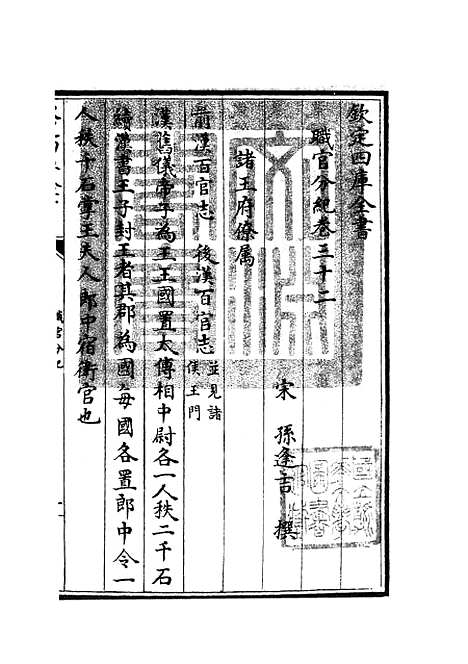 欽定四庫全書
職官分紀卷三十二
宋 孫逢吉 撰
諸王府僚属
前漢百官志 後漢百官志並見諸侯王門
漢舊儀帝子為王王國置太傅相中尉各一人秩二千石
續漢書王子封王者其郡為國每國各置郎中令一
人秩千石掌王大人郎中宿衛官也
職官分紀